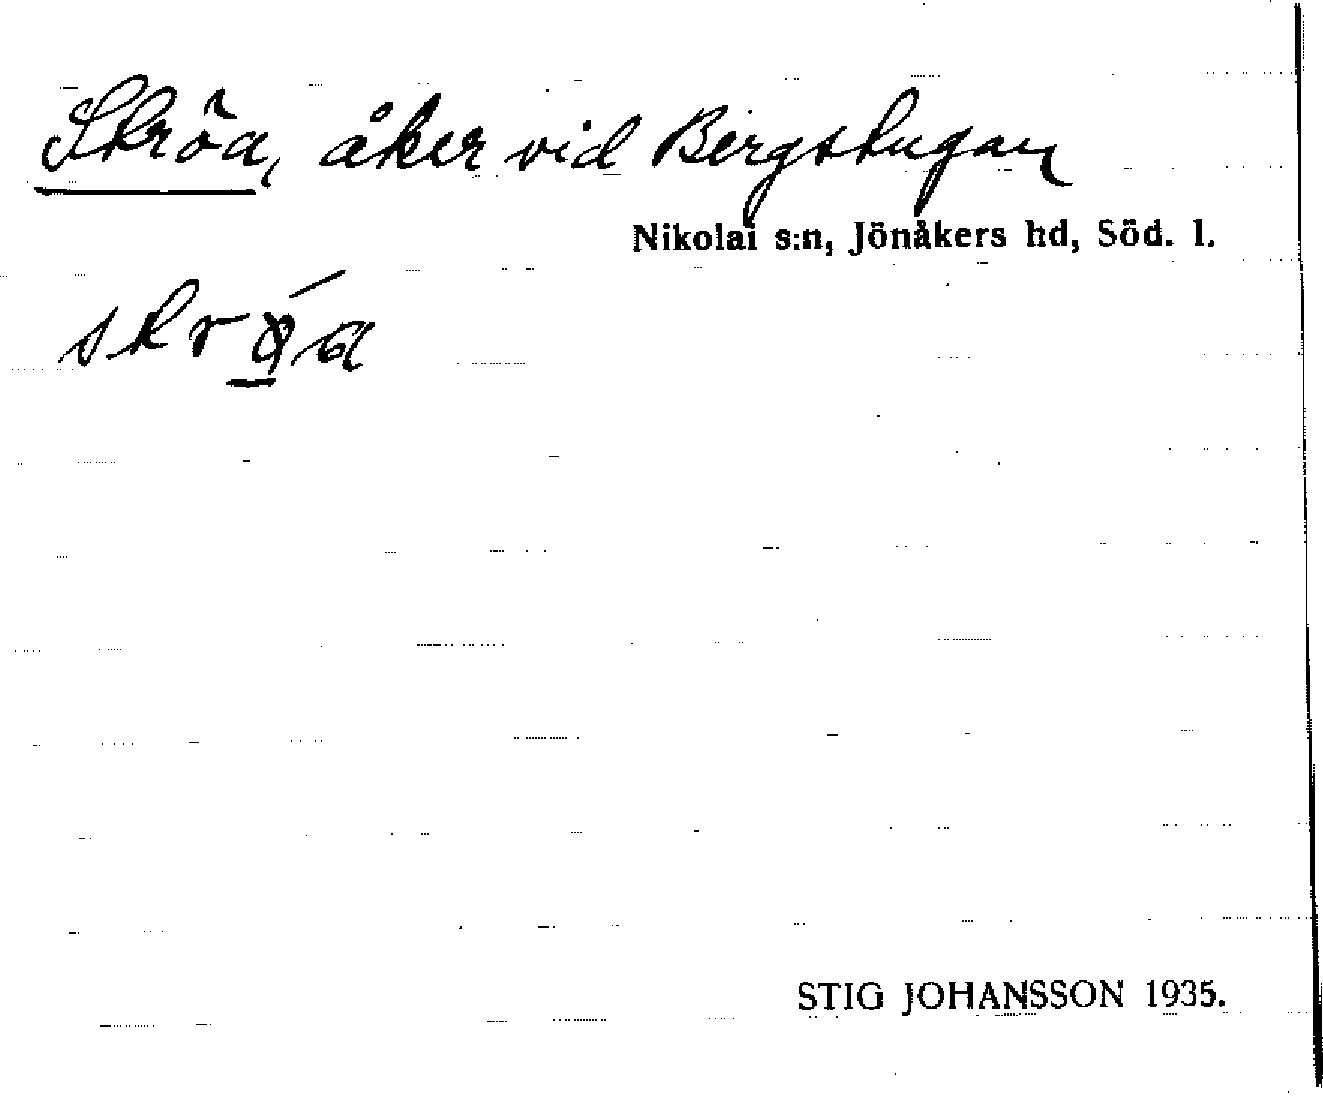 Skröa, åker vid Bergstugan
Nikolai s:n, Jönåkers hd, Söd. l.
STIG JOHANSSON 1935.